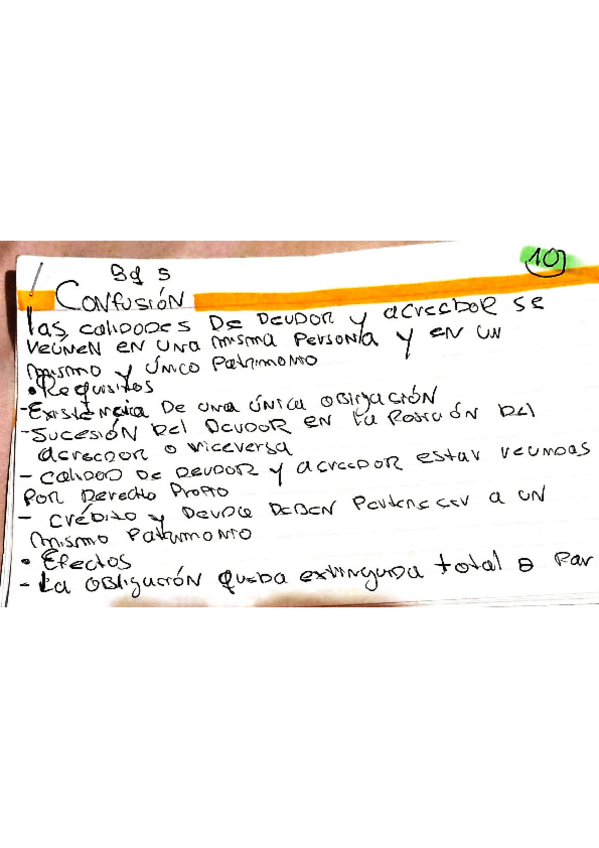 10
Bd 5
Confusión
las calidades de deudor y acreedor se
reúnen en una misma persona y en un
mismo y único patrimonio
• Requisitos
- Existencia de una única obligación
- Sucesión del deudor en la posición del
acreedor o viceversa
- calidad de deudor y acreedor estar reunidas
por derecho propio
- crédito y deuda deben pertenecer a un
mismo patrimonio
• Efectos
- La obligación queda extinguida total o par